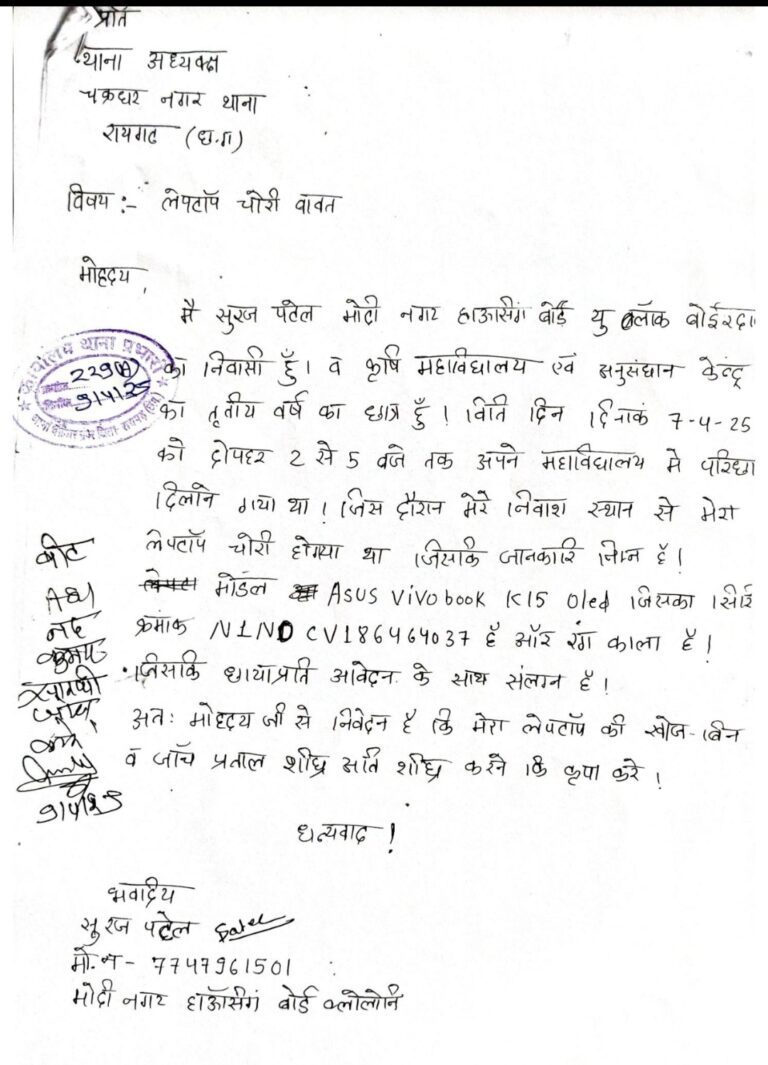 प्रति
थाना अध्यक्ष
चक्रधर नगर थाना
रायगढ (छ.ग)
विषय :- लेपटॉप चोरी बावत
मोहृदय,
मै सुरज पटेल मोदी नगर हाऊसिंग बोर्ड यु ब्लॉक बोईरदा
का निवासी हूँ। व कृषि महाविद्यालय एवं अनुसंधान केन्द्र
का तृतीय वर्ष का छात्र हूँ। विति दिन दिनाकं 7-4-25
को दोपहर 2 से 5 बजे तक अपने महाविद्यालय मे परिक्षा
दिलाने गया था। जिस दौरान मेरे निवाश स्थान से मेरा
लेपटॉप चोरी होगया था जिसकि जानकारि निम्न है।
मोडंल Asus Vivobook K15 Oled जिसका सिरि
क्रमांक N1N0CV186464037 है और रंग काला है।
जिसकि छायाप्रति आवेदन के साथ संलग्न है।
अत: मोहृदय जी से निवेदन है कि मेरा लेपटॉप की खोज-बिन
व जाँच प्रताल शीघ्र अति शीघ्र करने कि कृपा करे।
धन्यवाद!
भवदिय
सुरज पटेल Patel
मो.न - 7747961501
मोदी नगर हाऊसिंग बोर्ड कोलोनि
कार्यालय थाना प्रभारी
229(A)
9/4/25
बीट
9/4/25